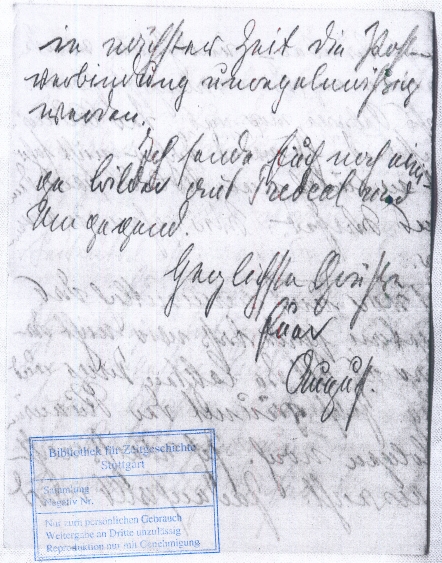 in nächster Zeit die Post-
verbindung unregelmäßig
werden.
Ich sende Euch noch eini-
ge Bilder aus Predeal und
Umgegend.
Herzlichste Grüße
Euer
August.
Bibliothek für Zeitgeschichte
Stuttgart
Sammlung
Negativ Nr.
Nur zum persönlichen Gebrauch
Weitergabe an Dritte unzulässig
Reproduktion nur mit Genehmigung